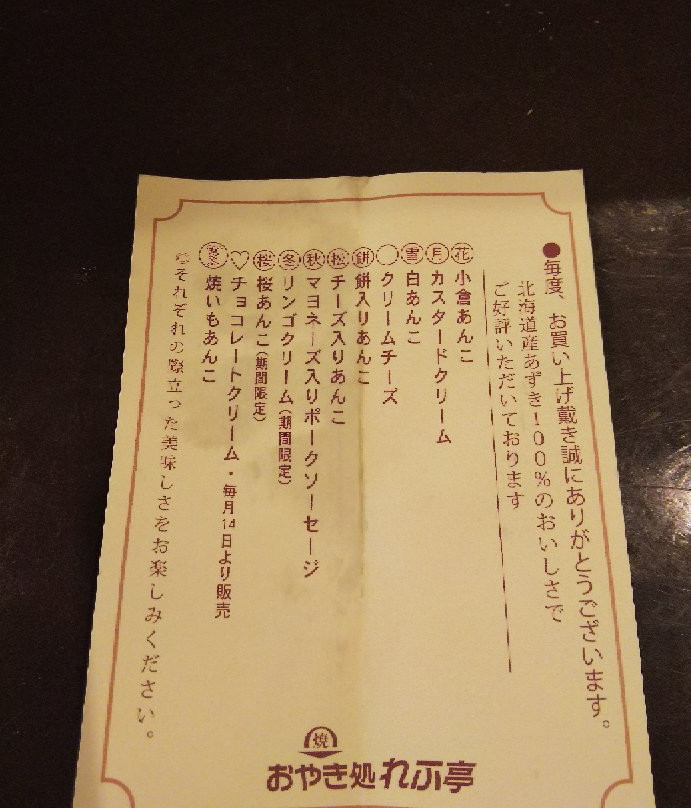 ●毎度、お買い上げ戴き誠にありがとうございます。
北海道産あずき100%のおいしさで
ご好評いただいております
花 小倉あんこ
月 カスタードクリーム
雪 白あんこ
クリームチーズ
餅 餅入りあんこ
松 チーズ入りあんこ
秋 マヨネーズ入りポークソーセージ
冬 リンゴクリーム(期間限定)
桜 桜あんこ(期間限定)
♡ チョコレートクリーム・毎月14日より販売
焼いもあんこ
それぞれの際立った美味しさをお楽しみください。
焼
おやき処れふ亭